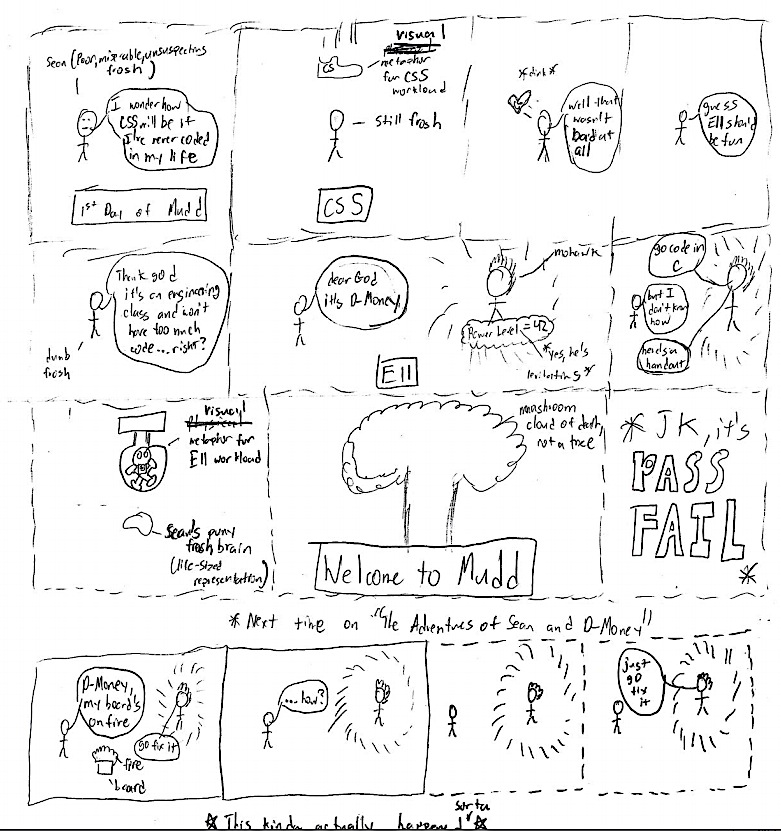 Sean (Poor, miserable, unsuspecting
frosh)
I wonder how
CS5 will be if
I've never coded
in my life
1st Day of Mudd
visual
metaphor
for CS5
workload
CS
still frosh
CS5
*dink*
well that
wasn't
bad at
all
guess
E11 should
be fun
Thank god
it's an engineering
class and won't
have too much
code...right?
dumb
frosh
dear God
it's D-Money
E11
mohawk
Power Level = 42
*yes, he's
levitating*
go code in
C
but I
don't know
how
here's a
handout
visual
metaphor for
E11 workload
Sean's puny
frosh brain
(life-sized
representation)
mushroom
cloud of death,
not a tree
Welcome to Mudd
* JK, it's
PASS
FAIL
*
*Next time on "The Adventures of Sean and D-Money"
D-Money,
my board's
on fire
go fix it
fire
board
....how?
just
go
fix
it
sorta
*This kinda actually happened*